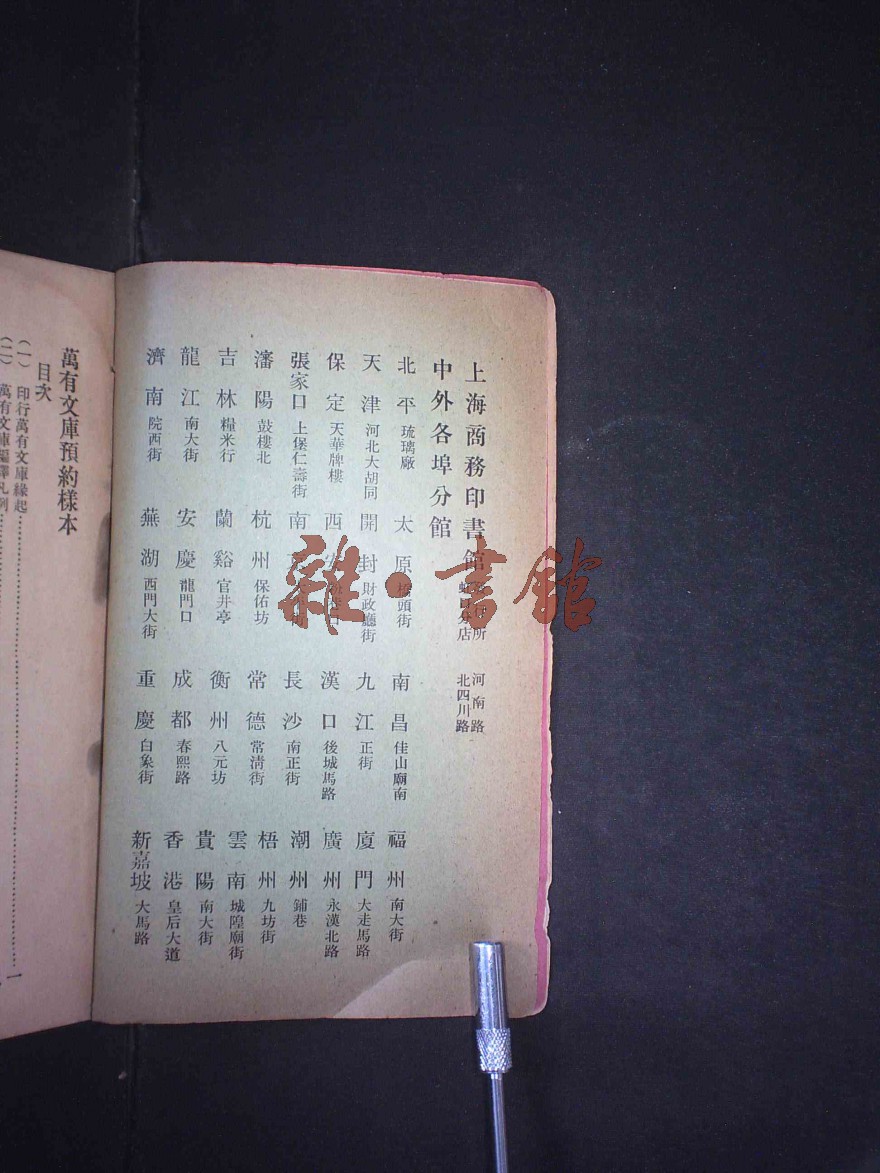 上海商務印書館
虹口分店
河南路
北四川路
中外各埠分館
北平 琉璃廠
太原 橋頭街
南昌 佳山廟南
福州 南大街
天津 河北大胡同
開封 財政廳街
九江 正街
廈門 大走馬路
保定 天華牌樓
西安
漢口 後城馬路
廣州 永漢北路
張家口 上堡仁壽街
南
長沙 南正街
潮州 鋪巷
瀋陽 鼓樓北
杭州 保佑坊
常德 常清街
梧州 九坊街
吉林 糧米行
蘭谿 官井亭
衡州 八元坊
雲南 城隍廟街
龍江 南大街
安慶 龍門口
成都 春熙路
貴陽 南大街
濟南 院西街
蕪湖 西門大街
重慶 白象街
香港 皇后大道
新嘉坡 大馬路
萬有文庫預約樣本
目次
(一) 印行萬有文庫緣起……一
(二) 萬有文庫編譯凡例
雜·書館